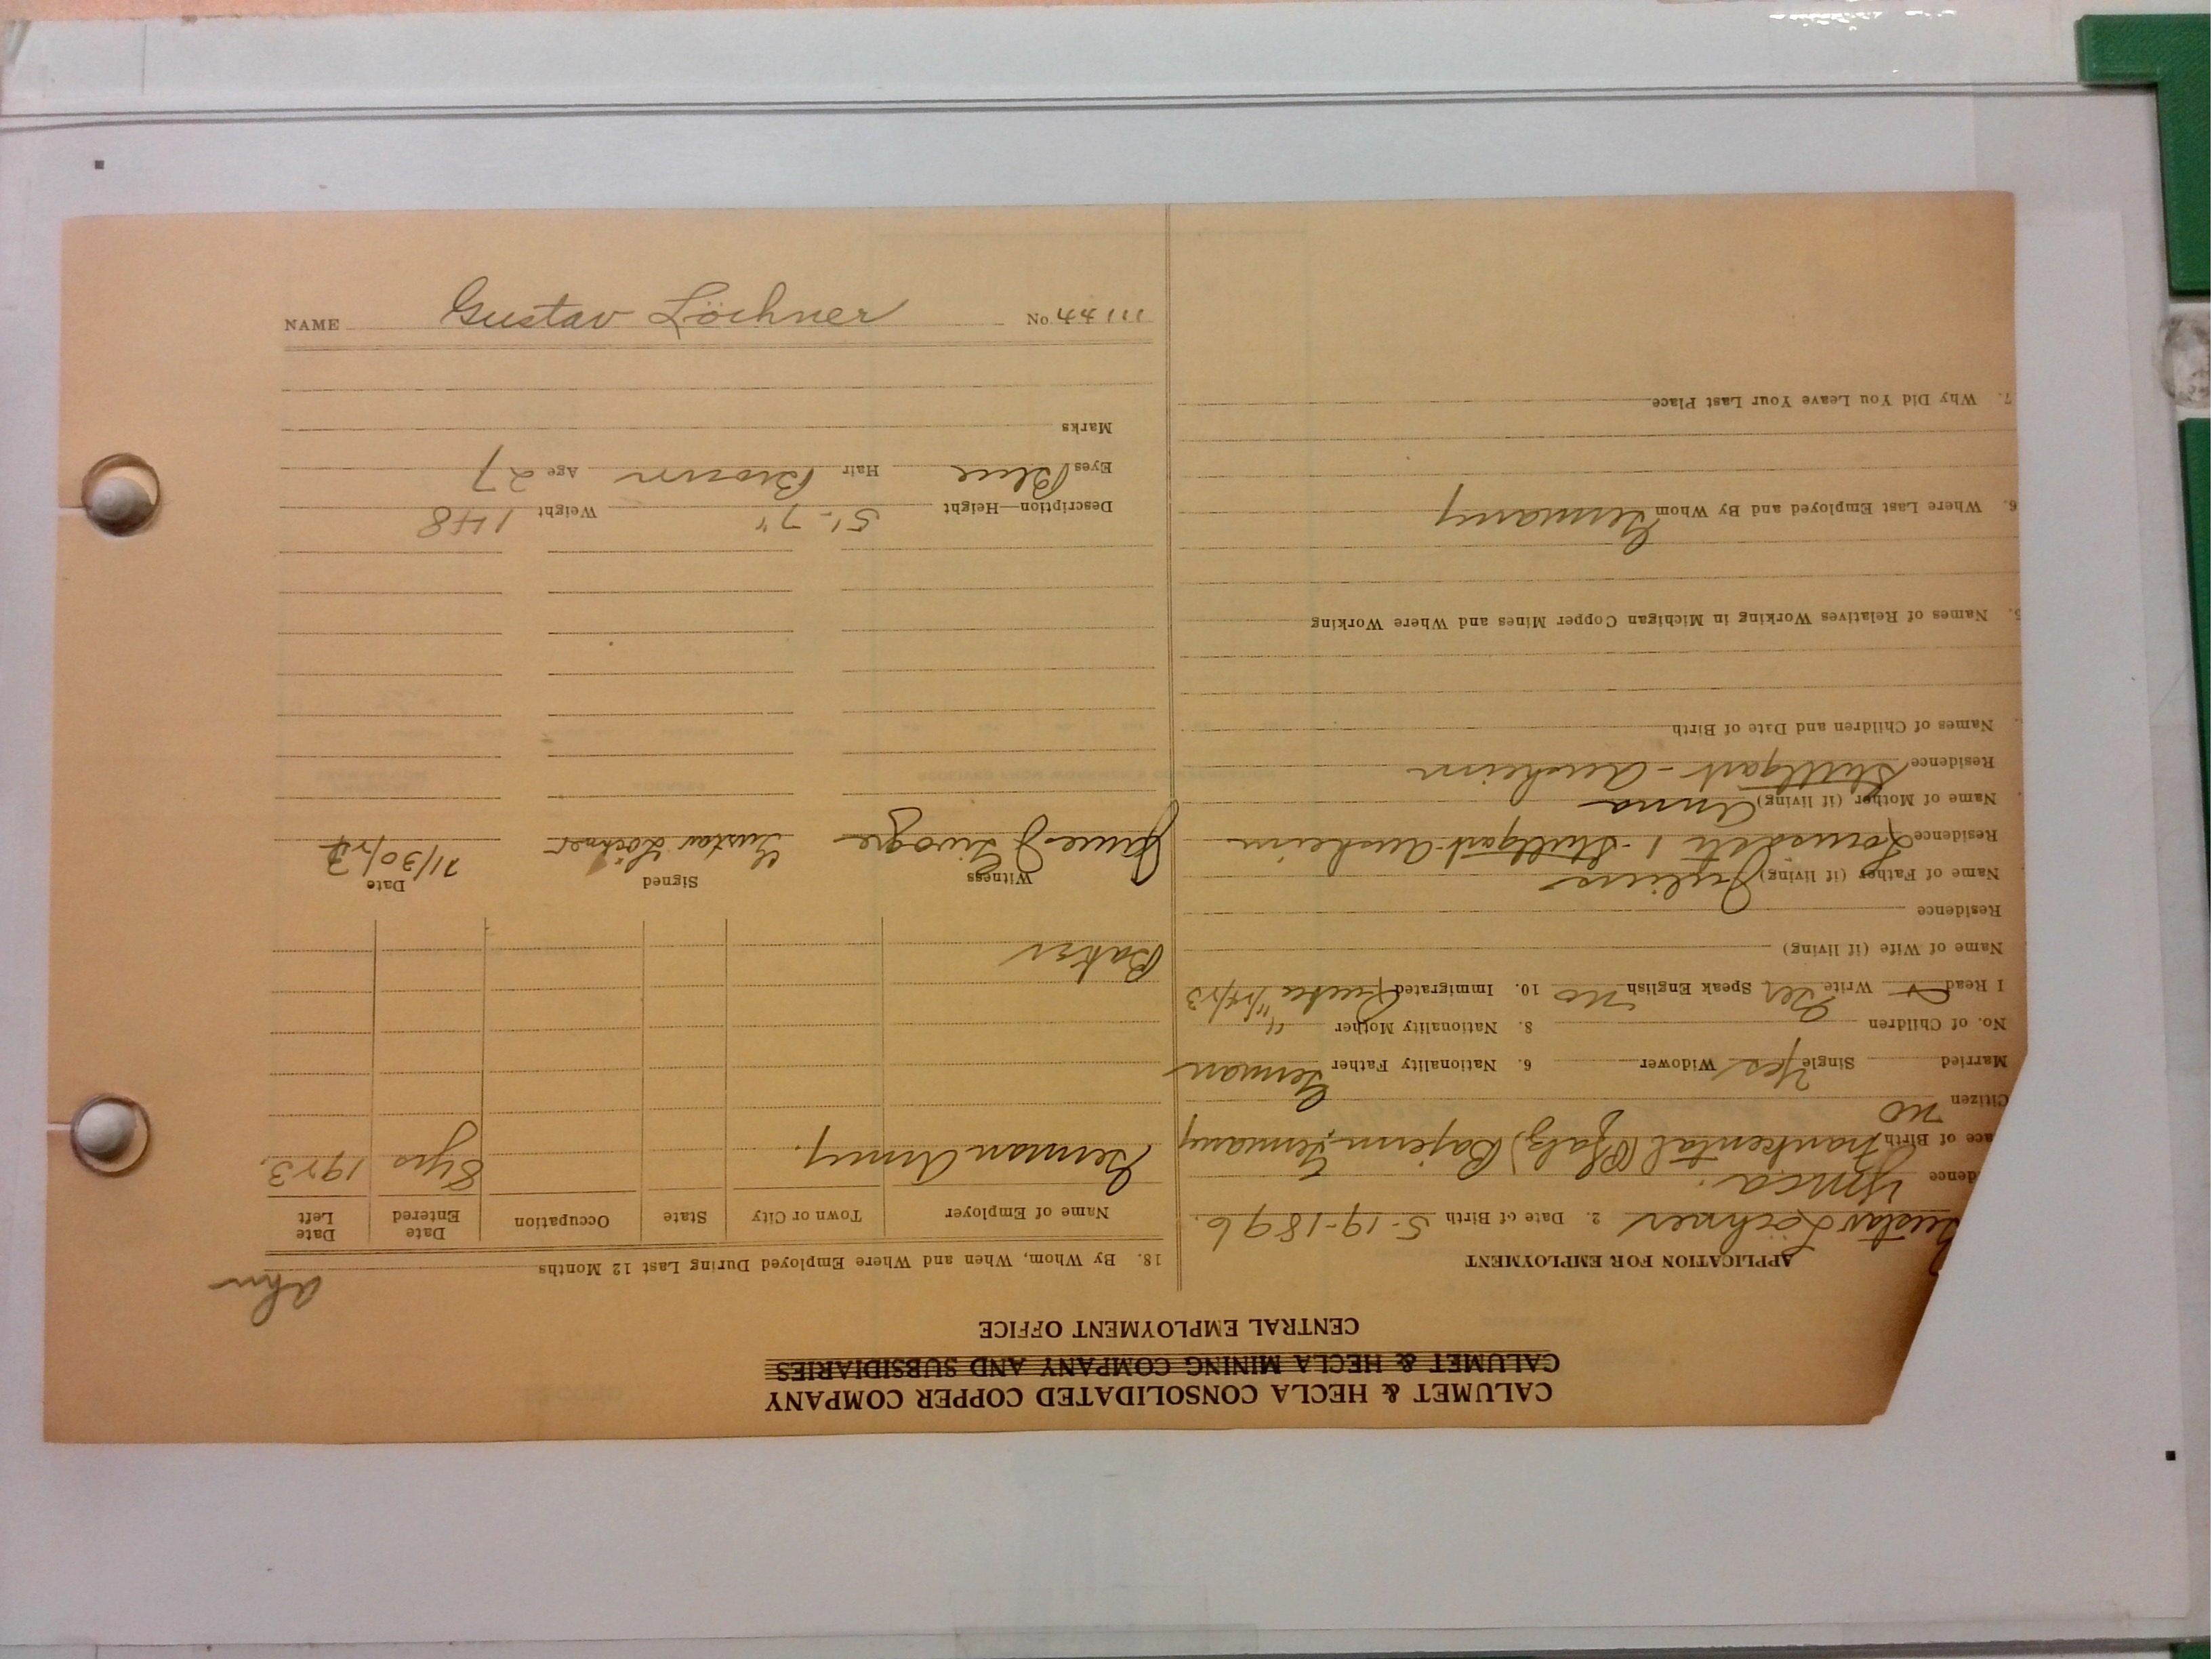 CALUMET & HECLA CONSOLIDATED COPPER COMPANY
CALUMET & HECLA MINING COMPANY AND SUBSIDIARIES
CENTRAL EMPLOYMENT OFFICE
APPLICATION FOR EMPLOYMENT
Gustav Löchner 2. Date of Birth 5-19-1896.
dence Ymca.
ace of Birth Frankental (Pfalz) Bajern, Germany
Citizen no
Married Single Yes Widower 6. Nationality Father German
No. of Children 8. Nationality Mother "
I Read Write Yes Speak English no 10. Immigrated 11/24/23
Name of Wife (if living)
Residence
Name of Father (if living) Julius
Residence 1-Stuttgart-
Name of Mother (if living) Anna
Residence Stuttgart-
Names of Children and Date of Birth
5. Names of Relatives Working in Michigan Copper Mines and Where Working
6. Where Last Employed and By Whom Germany
7. Why Did You Leave Your Last Place
18. By Whom, When and Where Employed During Last 12 Months
Name of Employer Town or City State Occupation Date Entered Date Left
German Army. 8 yrs 1923.
Baker
Witness Signed Date
Gustav Löchner 11/30/23
Description—Height 5'-7" Weight 148
Eyes Blue Hair Brown Age 27
Marks
NAME Gustav Löchner No.